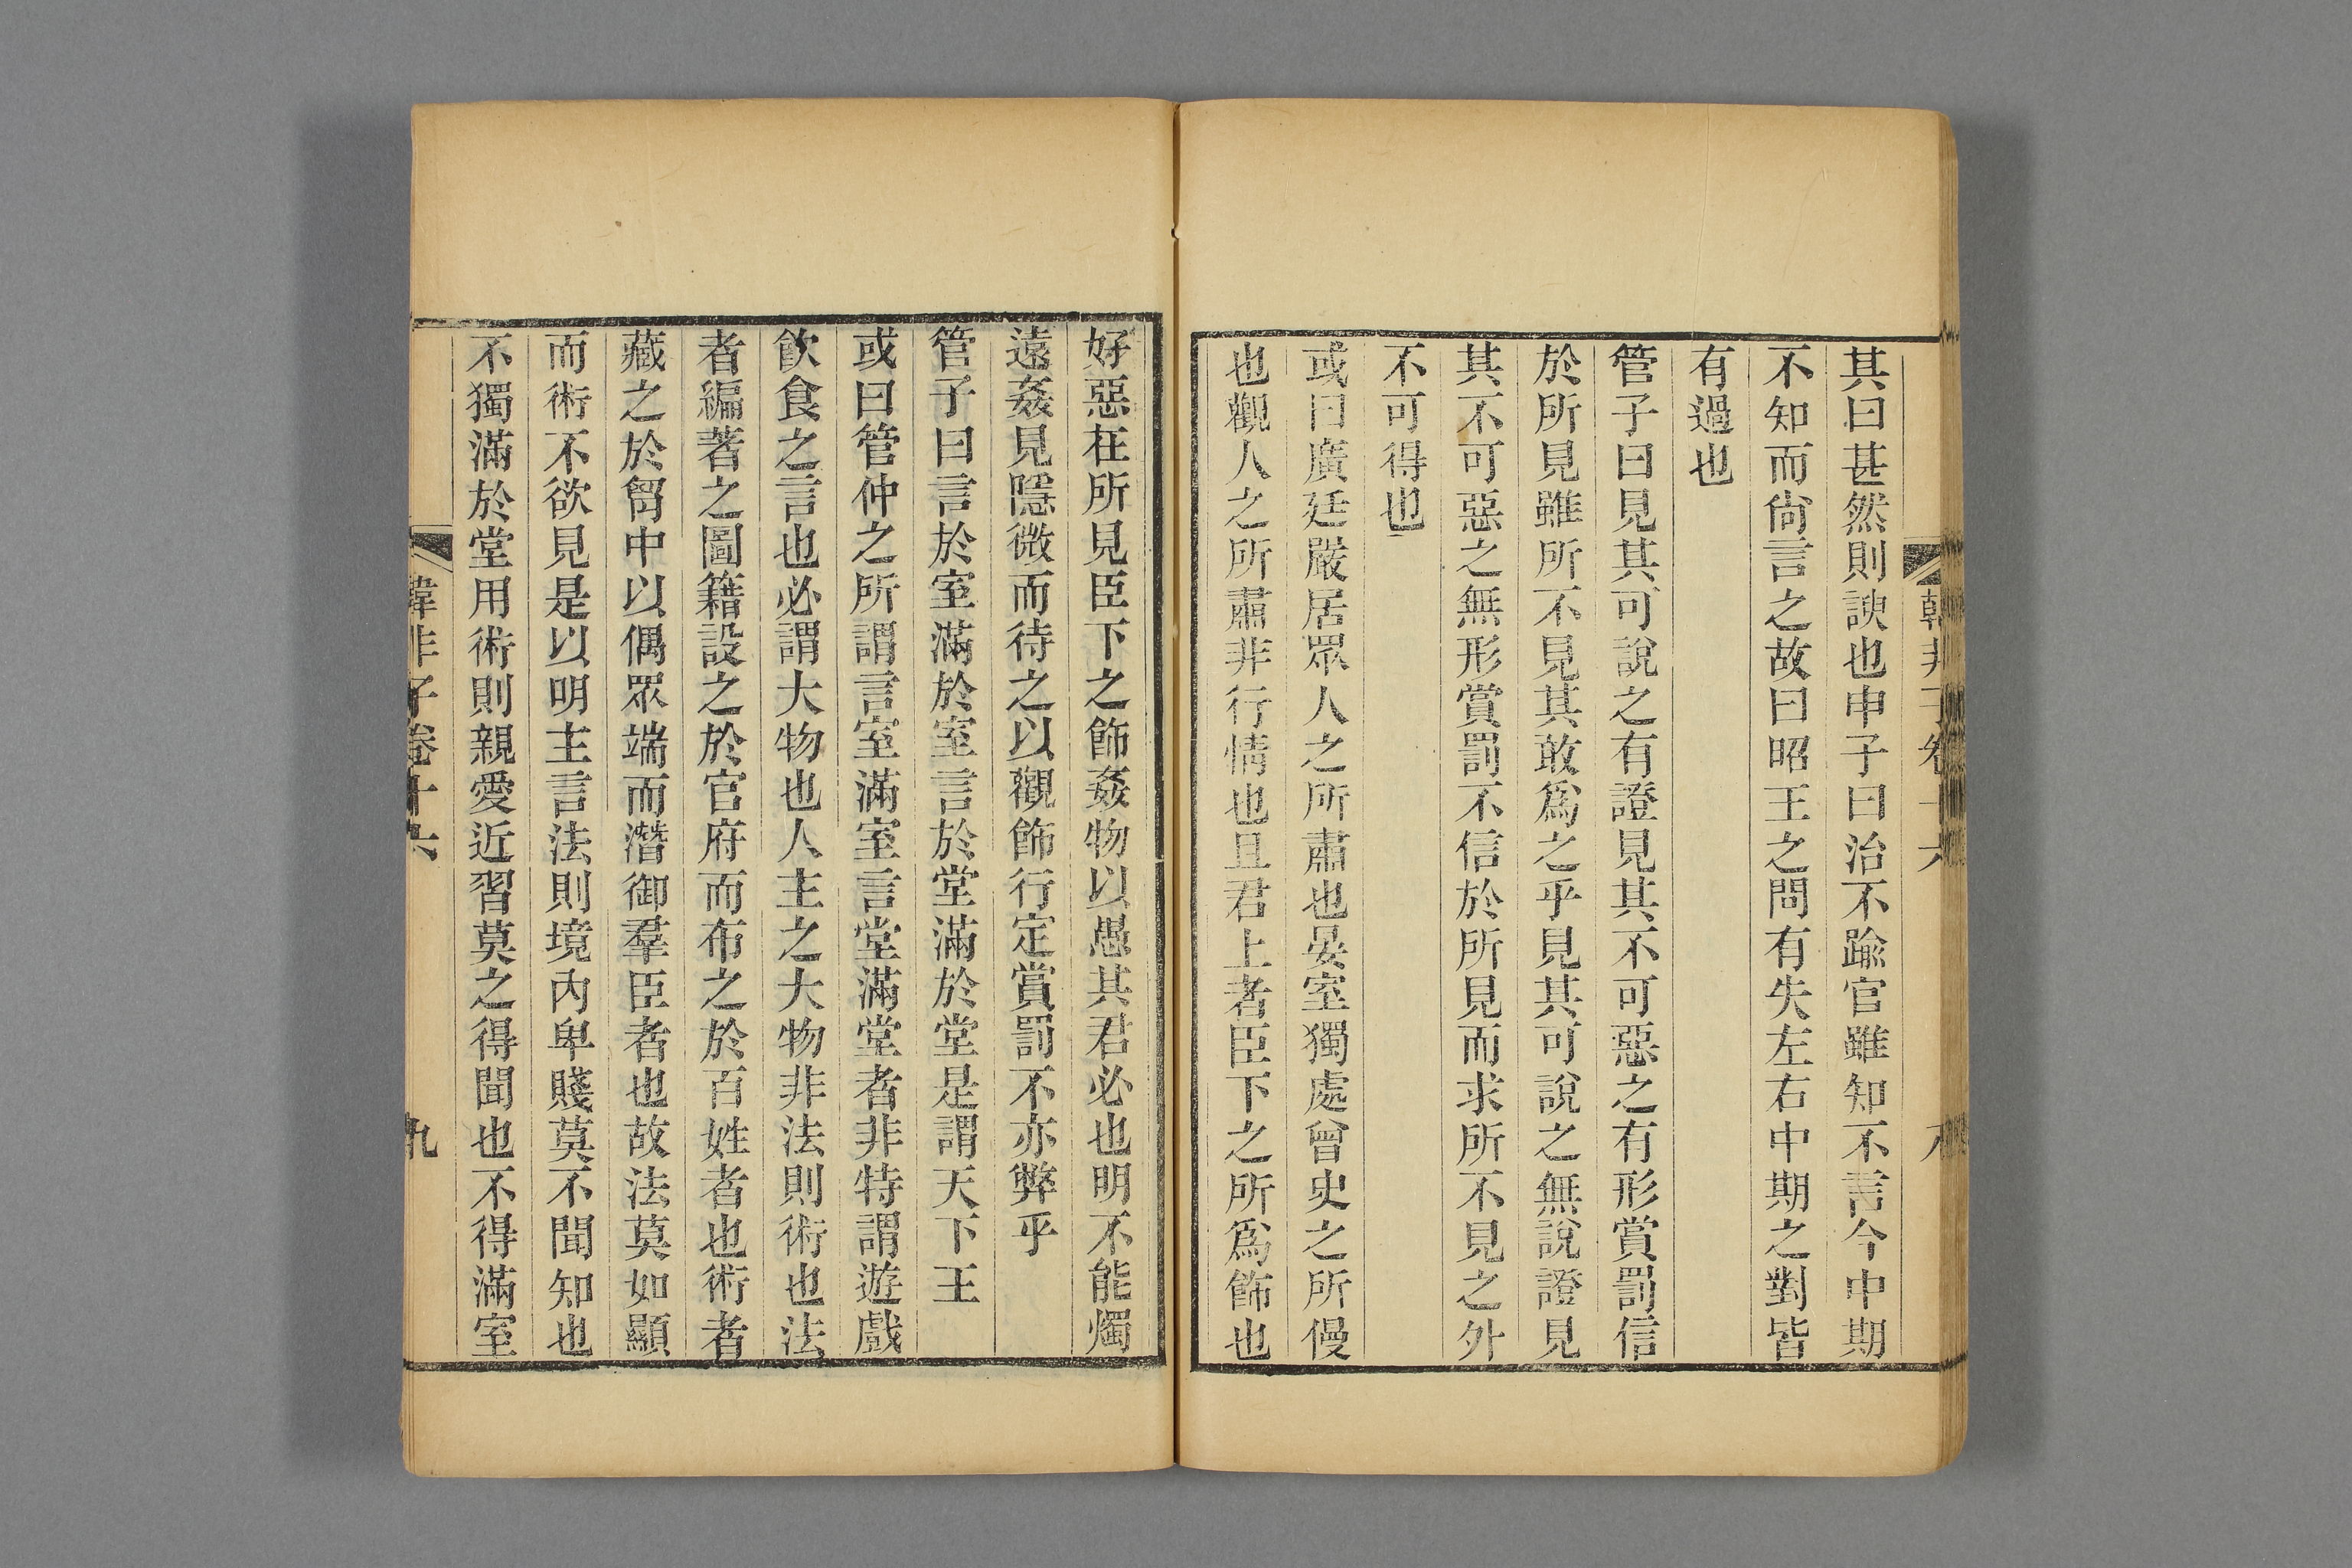 韓非子卷十六
八
其曰甚然則諛也申子曰治不踰官雖知不言今中期
不知而尙言之故曰昭王之問有失左右中期之對皆
有過也
管子曰見其可說之有證見其不可惡之有形賞罰信
於所見雖所不見其敢爲之乎見其可說之無說證見
其不可惡之無形賞罰不信於所見而求所不見之外
不可得也
或曰廣廷嚴居眾人之所肅也晏室獨處曾史之所僈
也觀人之所肅非行情也且君上者臣下之所爲飾也
好惡在所見臣下之飾姦物以愚其君必也明不能燭
遠姦見隱微而待之以觀飾行定賞罰不亦弊乎
管子曰言於室滿於室言於堂滿於堂是謂天下王
或曰管仲之所謂言室滿室言堂滿堂者非特謂遊戲
飮食之言也必謂大物也人主之大物非法則術也法
者編著之圖籍設之於官府而布之於百姓者也術者
藏之於胷中以偶眾端而潛御羣臣者也故法莫如顯
而術不欲見是以明主言法則境內卑賤莫不聞知也
不獨滿於堂用術則親愛近習莫之得聞也不得滿室
韓非子卷十六
九